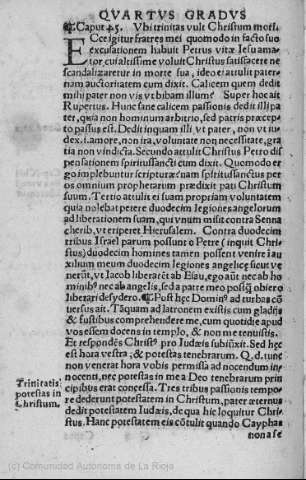 QVARTVS GRADVS
Caput.45. Vbi trinitas vult Christum mori.
Ecce igitur fratres mei quomodo in facto suo
excusationem habuit Petrus vitæ Iesu ama-
tor, cui altissime voluit Christus satisfacere ne
scandalizaretur in morte sua, ideo ei attulit pater-
nam auctoritatem cum dixit. Calicem quem dedit
mihi pater non vis vt bibam illum? Super hoc ait
Rupertus. Hunc sane calicem passionis dedit illi pa-
ter, quia non hominum arbitrio, sed patris præcep-
to passus est. Dedit inquam illi vt pater, non vt iu-
dex. i. amore, non ira, voluntate non necessitate, gra-
tia non vindicta. Secundo attulit Christus Petro dis
pensationem spiritussancti cum dixit. Quomodo er-
go implebuntur scripturæ? nam spiritussanctus per
os omnium prophetarum prædixit pati Christum
suum. Tertio attulit ei suam propriam voluntatem
quia nolebat petere duodecim legiones angelorum
ad liberationem suam, qui vnum misit contra Senna
cherib, vt eriperet Hierusalem. Contra duodecim
tribus Israel parum possunt o Petre (inquit Chris-
tus) duodecim homines tamen possent venire i au-
xilium meum duodecim legiones angelicę sicut ve
nerūt, vt Iacob liberarēt ab Esau, ego aūt nec ab ho
minibꝰ nec ab angelis, sed a parte meo possꝫ obiero
liberari desydero. Post hęc Dominꝰ ad turbas cō
uersus ait. Tāquam ad latronem existis cum gladijs
& fustibus comprehendere me, cum quotidie apud
vos essem docens in templo, & non me tenuistis.
Et respondēs Christꝰ pro Iudæis subiūxit. Sed hęc
est hora vestra, & potestas tenebrarum. Q. d. tunc
non venerat hora vobis permissa ad nocendum in-
nocenti, nec potestas in me a Deo tenebrarum prin
cipibus erat concessa. Tres tribus passionis tempo-
re dederunt potestatem in Christum, pater æternus
dedit potestatem Iudæis, de qua hic loquitur Chris-
tus. Hanc potestatem eis consuluit quando Cayphas
non a se
Trinitatis
potestas in
Christum.
(c) Comunidad Autonoma de La Rioja